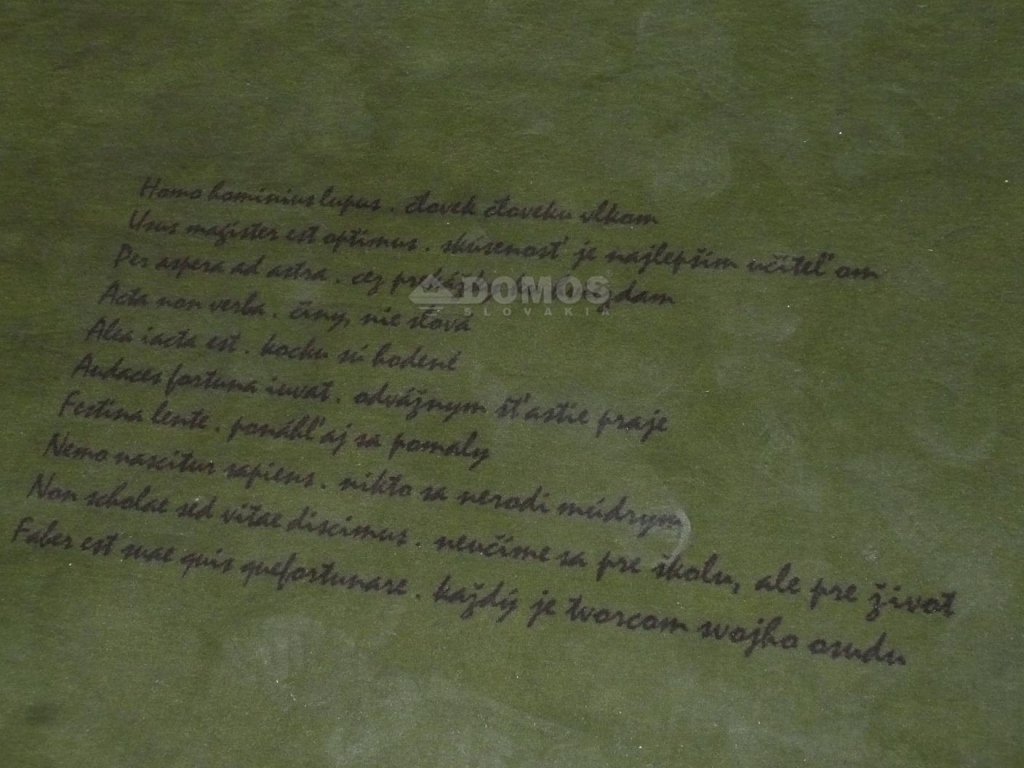 Homo hominius lupus . človek človeku vlkom
Usus magister est optimus . skúsenosť je najlepším učiteľ om
Per aspera ad astra . cez prekážky k hviezdam
Acta non verba . činy, nie slová
Alea iacta est . kocky sú hodené
Audaces fortuna iuvat . odvážnym šťastie praje
Festina lente . ponáhľaj sa pomaly
Nemo nascitur sapiens . nikto sa nerodí múdrym
Non scholae sed vitae discimus . neučíme sa pre školu, ale pre život
Faber est suae quis quefortunare . každý je tvorcom svojho osudu
DOMOS
SLOVAKIA